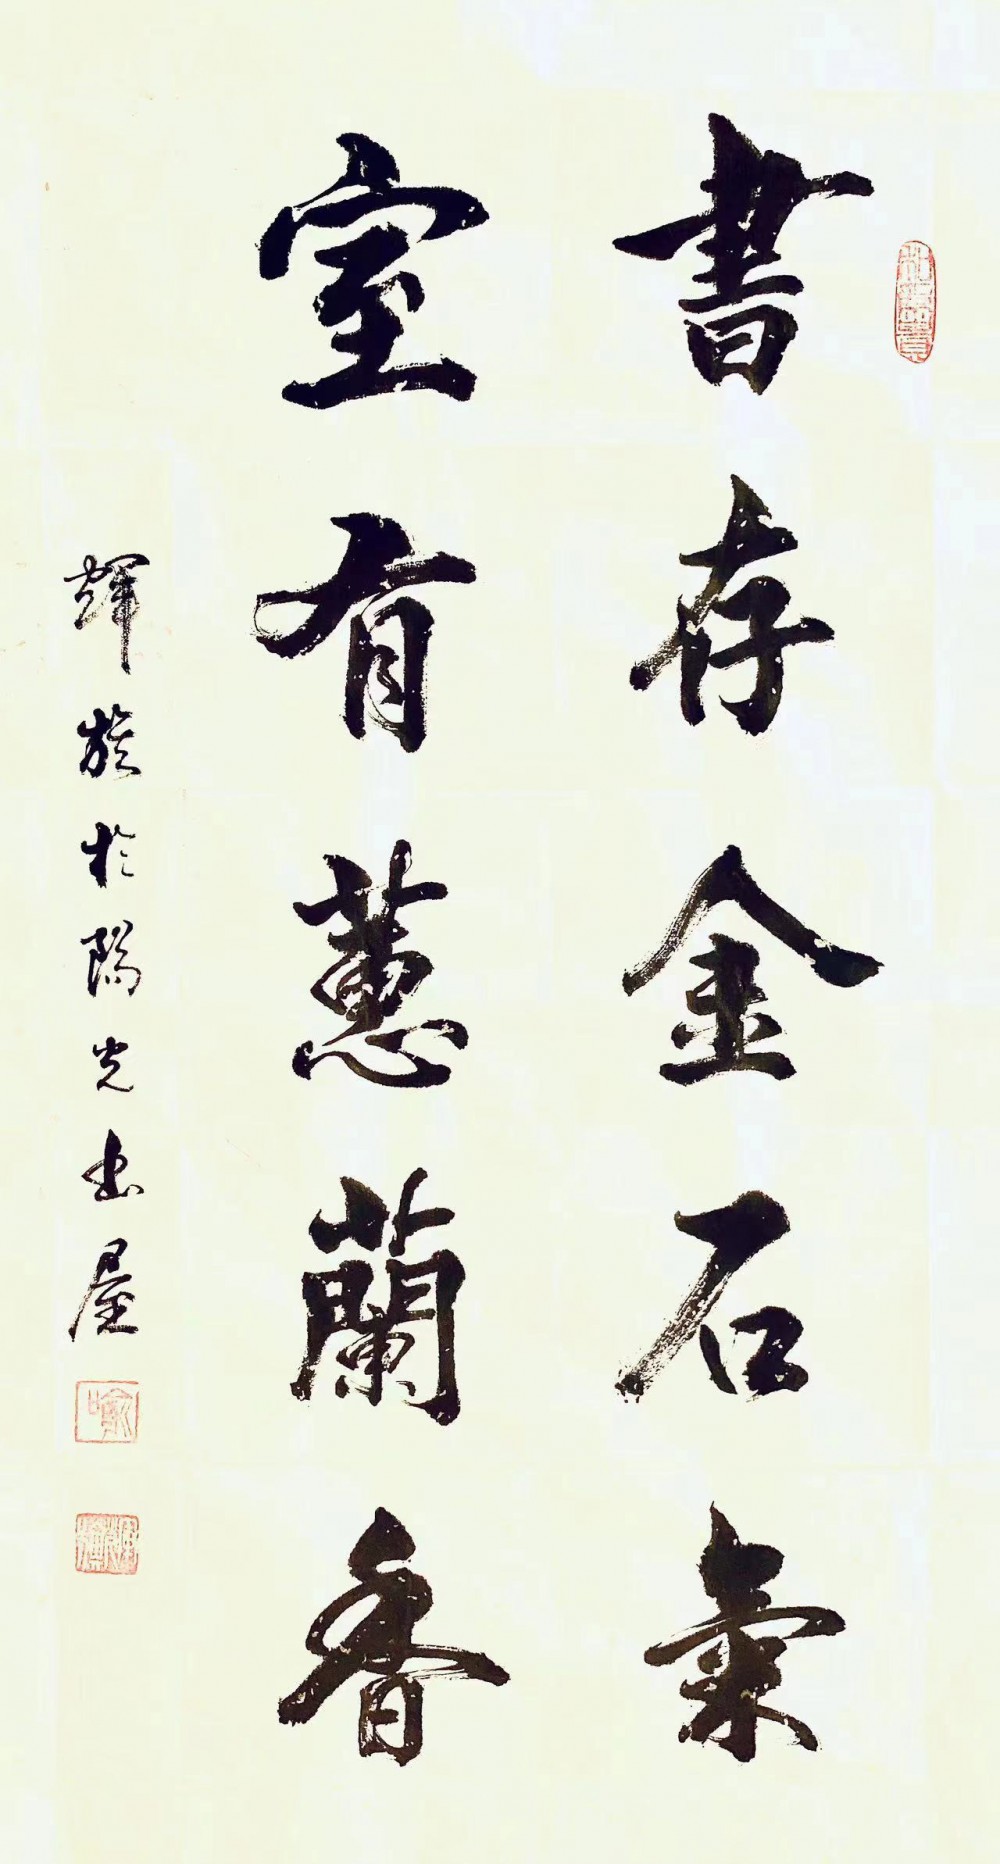 書存金石氣
室有蕙蘭香
輝旋於陽光書屋
喻